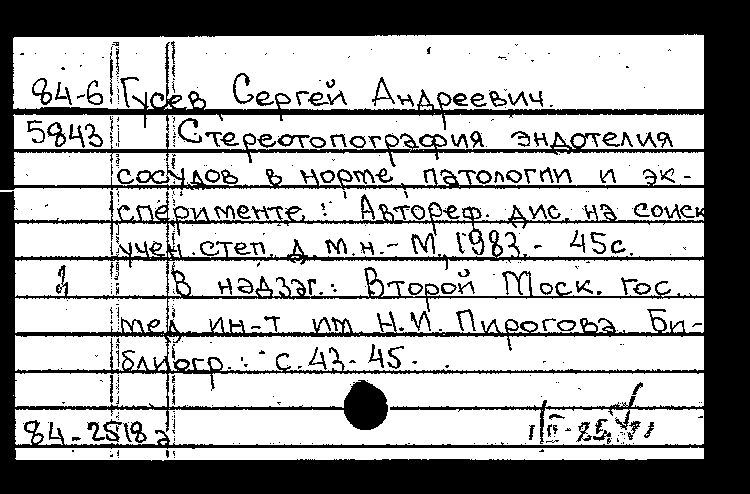 84-6 Гусев Сергей Андреевич.
5843 Стереотопография эндотелия
сосудов в норме, патологии и эк-
сперименте : Автореф. дис. на соиск
учен. степ. д. м. н. - М., 1983. - 45 с.
В надзаг.: Второй Моск. гос.
мед. ин-т им. Н. И. Пирогова. Би-
блиогр.: с. 43-45.
84-2518а